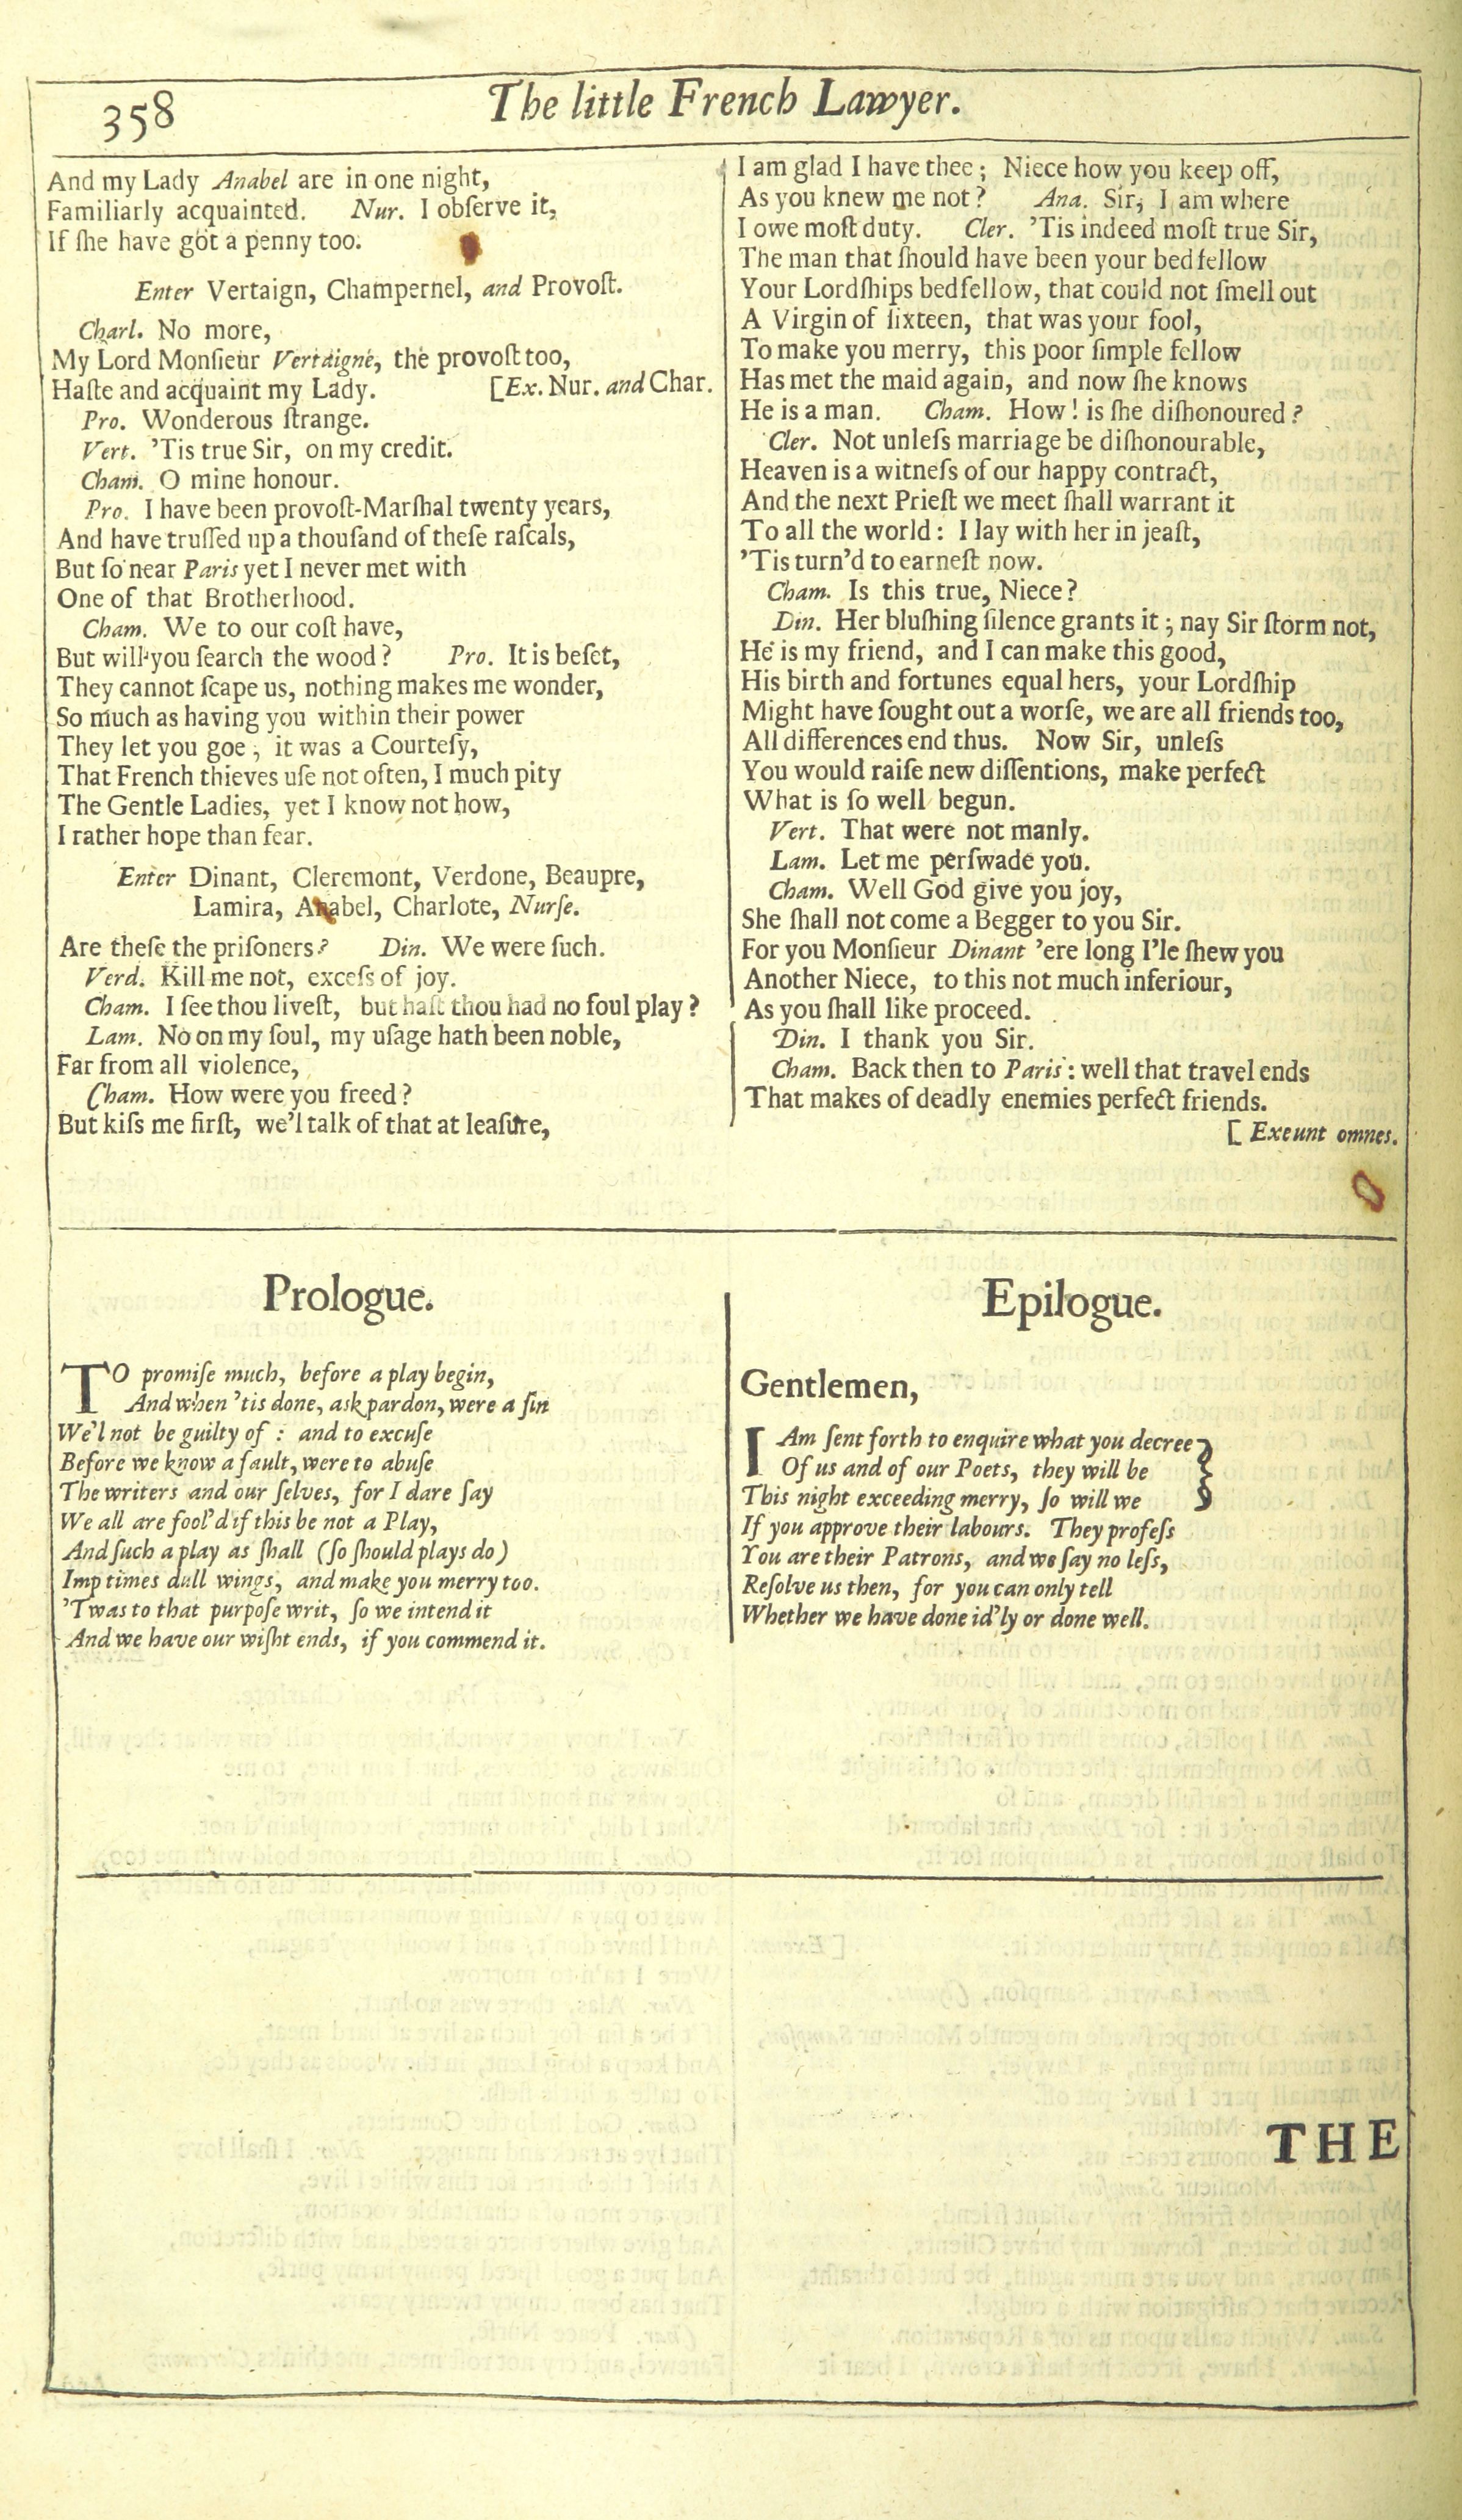 358
The little French Lawyer.
And my Lady Anabel are in one night,
Familiarly acquainted. Nur. I obſerve it,
If ſhe have got a penny too.
Enter Vertaign, Champernel, and Provoſt.
Charl. No more,
My Lord Monſieur Vertaigne, the provoſt too,
Haſte and acquaint my Lady. [Ex. Nur. and Char.
Pro. Wonderous ſtrange.
Vert. 'Tis true Sir, on my credit.
Cham. O mine honour.
Pro. I have been provoſt-Marſhal twenty years,
And have truſſed up a thouſand of theſe raſcals,
But ſo near Paris yet I never met with
One of that Brotherhood.
Cham. We to our coſt have,
But will you ſearch the wood? Pro. It is beſet,
They cannot ſcape us, nothing makes me wonder,
So much as having you within their power
They let you goe; it was a Courteſy,
That French thieves uſe not often, I much pity
The Gentle Ladies, yet I know not how,
I rather hope than fear.
Enter Dinant, Cleremont, Verdone, Beaupre,
Lamira, Anabel, Charlote, Nurſe.
Are theſe the priſoners? Din. We were ſuch.
Verd. Kill me not, exceſs of joy.
Cham. I ſee thou liveſt, but haſt thou had no foul play?
Lam. No on my ſoul, my uſage hath been noble,
Far from all violence,
Cham. How were you freed?
But kiſs me firſt, we'l talk of that at leaſure,
I am glad I have thee; Niece how you keep off,
As you knew me not? Ana. Sir, I am where
I owe moſt duty. Cler. 'Tis indeed moſt true Sir,
The man that ſhould have been your bedfellow
Your Lordſhips bedfellow, that could not ſmell out
A Virgin of ſixteen, that was your fool,
To make you merry, this poor ſimple fellow
Has met the maid again, and now ſhe knows
He is a man. Cham. How! is ſhe diſhonoured?
Cler. Not unleſs marriage be diſhonourable,
Heaven is a witneſs of our happy contract,
And the next Prieſt we meet ſhall warrant it
To all the world: I lay with her in jeaſt,
'Tis turn'd to earneſt now.
Cham. Is this true, Niece?
Din. Her bluſhing ſilence grants it; nay Sir ſtorm not,
He is my friend, and I can make this good,
His birth and fortunes equal hers, your Lordſhip
Might have ſought out a worſe, we are all friends too,
All differences end thus. Now Sir, unleſs
You would raiſe new diſſentions, make perfect
What is ſo well begun.
Vert. That were not manly.
Lam. Let me perſwade you.
Cham. Well God give you joy,
She ſhall not come a Begger to you Sir.
For you Monſieur Dinant 'ere long I'le ſhew you
Another Niece, to this not much inferiour,
As you ſhall like proceed.
Din. I thank you Sir.
Cham. Back then to Paris: well that travel ends
That makes of deadly enemies perfect friends.
[Exeunt omnes.
Prologue.
TO promiſe much, before a play begin,
And when 'tis done, ask pardon, were a ſin
We'l not be guilty of: and to excuſe
Before we know a fault, were to abuſe
The writers and our ſelves, for I dare ſay
We all are fool'd if this be not a Play,
And ſuch a play as ſhall (ſo ſhould plays do)
Imp times dull wings, and make you merry too.
'Twas to that purpoſe writ, ſo we intend it
And we have our wiſht ends, if you commend it.
Epilogue.
Gentlemen,
I Am ſent forth to enquire what you decree
Of us and of our Poets, they will be
This night exceeding merry, ſo will we
If you approve their labours. They profeſs
You are their Patrons, and we ſay no leſs,
Reſolve us then, for you can only tell
Whether we have done id'ly or done well.
THE